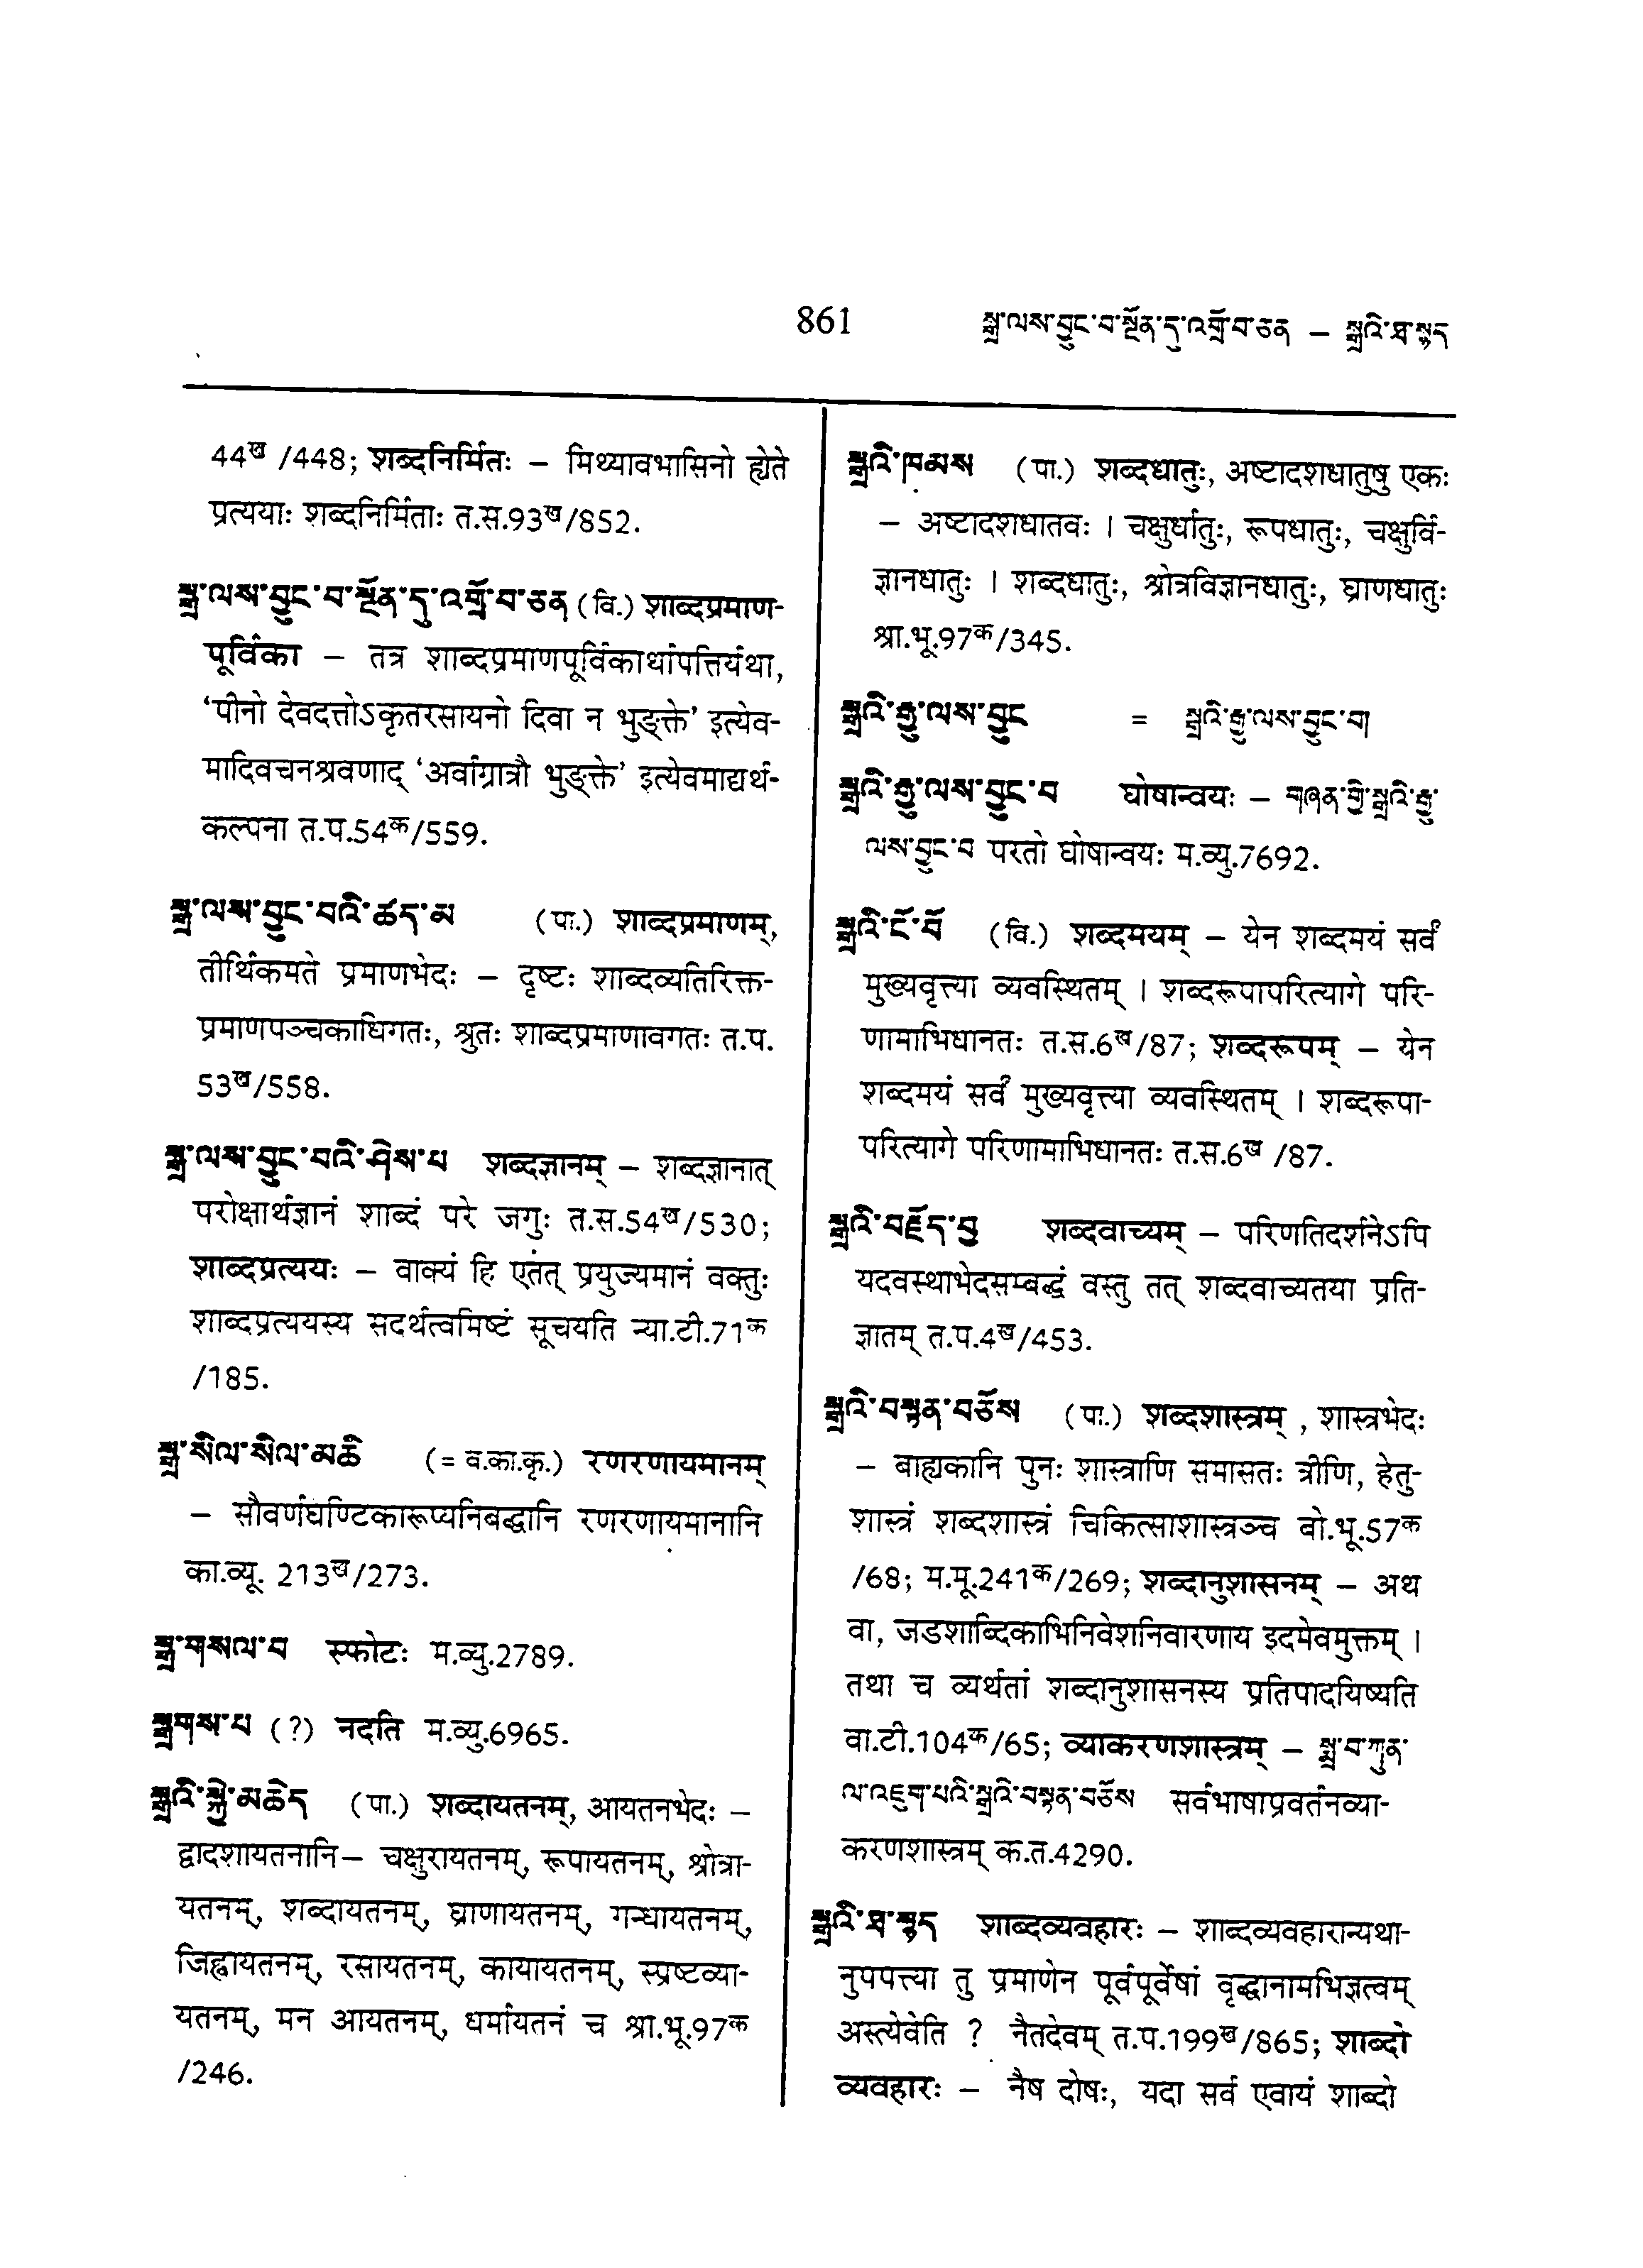 861
སྒྲ་ལས་བྱུང་བ་སྔོན་དུ་འགྲོ་བ་ཅན – སྒྲའི་ཐ་སྙད
44ख /448; शब्दनिर्मितः – मिथ्यावभासिनो ह्येते
प्रत्ययाः शब्दनिर्मिताः त.स.93ख/852.
སྒྲ་ལས་བྱུང་བ་སྔོན་དུ་འགྲོ་བ་ཅན (वि.) शाब्दप्रमाण-
पूर्विका – तत्र शाब्दप्रमाणपूर्विकार्थापत्तिर्यथा,
‘पीनो देवदत्तोऽकृतरसायनो दिवा न भुङ्क्ते’ इत्येव-
मादिवचनश्रवणाद् ‘अर्वाग्रात्रौ भुङ्क्ते’ इत्येवमाद्यर्थ-
कल्पना त.प.54क/559.
སྒྲ་ལས་བྱུང་བའི་ཚད་མ (पा.) शाब्दप्रमाणम्,
तीर्थिकमते प्रमाणभेदः – दृष्टः शाब्दव्यतिरिक्त-
प्रमाणपञ्चकाधिगतः, श्रुतः शाब्दप्रमाणावगतः त.प.
53ख/558.
སྒྲ་ལས་བྱུང་བའི་ཤེས་པ शब्दज्ञानम् – शब्दज्ञानात्
परोक्षार्थज्ञानं शाब्दं परे जगुः त.स.54ख/530;
शाब्दप्रत्ययः – वाक्यं हि एतत् प्रयुज्यमानं वक्तुः
शाब्दप्रत्ययस्य सदर्थत्वमिष्टं सूचयति न्या.टी.71क
/185.
སྒྲ་སིལ་སིལ་མཆི (= व.का.कृ.) रणरणायमानम्
– सौवर्णघण्टिकारूप्यनिबद्धानि रणरणायमानानि
का.व्यू. 213ख/273.
སྒྲ་གསལ་བ स्फोटः म.व्यु.2789.
སྒྲགས་པ (?) नदति म.व्यु.6965.
སྒྲའི་སྐྱེ་མཆེད (पा.) शब्दायतनम्, आयतनभेदः –
द्वादशायतनानि– चक्षुरायतनम्, रूपायतनम्, श्रोत्रा-
यतनम्, शब्दायतनम्, घ्राणायतनम्, गन्धायतनम्,
जिह्वायतनम्, रसायतनम्, कायायतनम्, स्प्रष्टव्या-
यतनम्, मन आयतनम्, धर्मायतनं च श्रा.भू.97क
/246.
སྒྲའི་ཁམས (पा.) शब्दधातुः, अष्टादशधातुषु एकः
– अष्टादशधातवः । चक्षुर्धातुः, रूपधातुः, चक्षुर्वि-
ज्ञानधातुः । शब्दधातुः, श्रोत्रविज्ञानधातुः, घ्राणधातुः
श्रा.भू.97क/345.
སྒྲའི་རྒྱུ་ལས་བྱུང = སྒྲའི་རྒྱུ་ལས་བྱུང་བ།
སྒྲའི་རྒྱུ་ལས་བྱུང་བ घोषान्वयः – གཞན་གྱི་སྒྲའི་རྒྱུ་
ལས་བྱུང་བ परतो घोषान्वयः म.व्यु.7692.
སྒྲའི་ངོ་བོ (वि.) शब्दमयम् – येन शब्दमयं सर्वं
मुख्यवृत्त्या व्यवस्थितम् । शब्दरूपापरित्यागे परि-
णामाभिधानतः त.स.6ख/87; शब्दरूपम् – येन
शब्दमयं सर्वं मुख्यवृत्त्या व्यवस्थितम् । शब्दरूपा-
परित्यागे परिणामाभिधानतः त.स.6ख /87.
སྒྲའི་བརྗོད་བྱ शब्दवाच्यम् – परिणतिदर्शनेऽपि
यदवस्थाभेदसम्बद्धं वस्तु तत् शब्दवाच्यतया प्रति-
ज्ञातम् त.प.4ख/453.
སྒྲའི་བསྟན་བཅོས (पा.) शब्दशास्त्रम् , शास्त्रभेदः
– बाह्यकानि पुनः शास्त्राणि समासतः त्रीणि, हेतु-
शास्त्रं शब्दशास्त्रं चिकित्साशास्त्रञ्च बो.भू.57क
/68; म.मू.241क/269; शब्दानुशासनम् – अथ
वा, जडशाब्दिकाभिनिवेशनिवारणाय इदमेवमुक्तम् ।
तथा च व्यर्थतां शब्दानुशासनस्य प्रतिपादयिष्यति
वा.टी.104क/65; व्याकरणशास्त्रम् – སྨྲ་བ་ཀུན་
ལ་འཇུག་པའི་སྒྲའི་བསྟན་བཅོས सर्वभाषाप्रवर्तनव्या-
करणशास्त्रम् क.त.4290.
སྒྲའི་ཐ་སྙད शाब्दव्यवहारः – शाब्दव्यवहारान्यथा-
नुपपत्त्या तु प्रमाणेन पूर्वपूर्वेषां वृद्धानामभिज्ञत्वम्
अस्त्येवेति ? नैतदेवम् त.प.199ख/865; शाब्दो
व्यवहारः – नैष दोषः, यदा सर्व एवायं शाब्दो